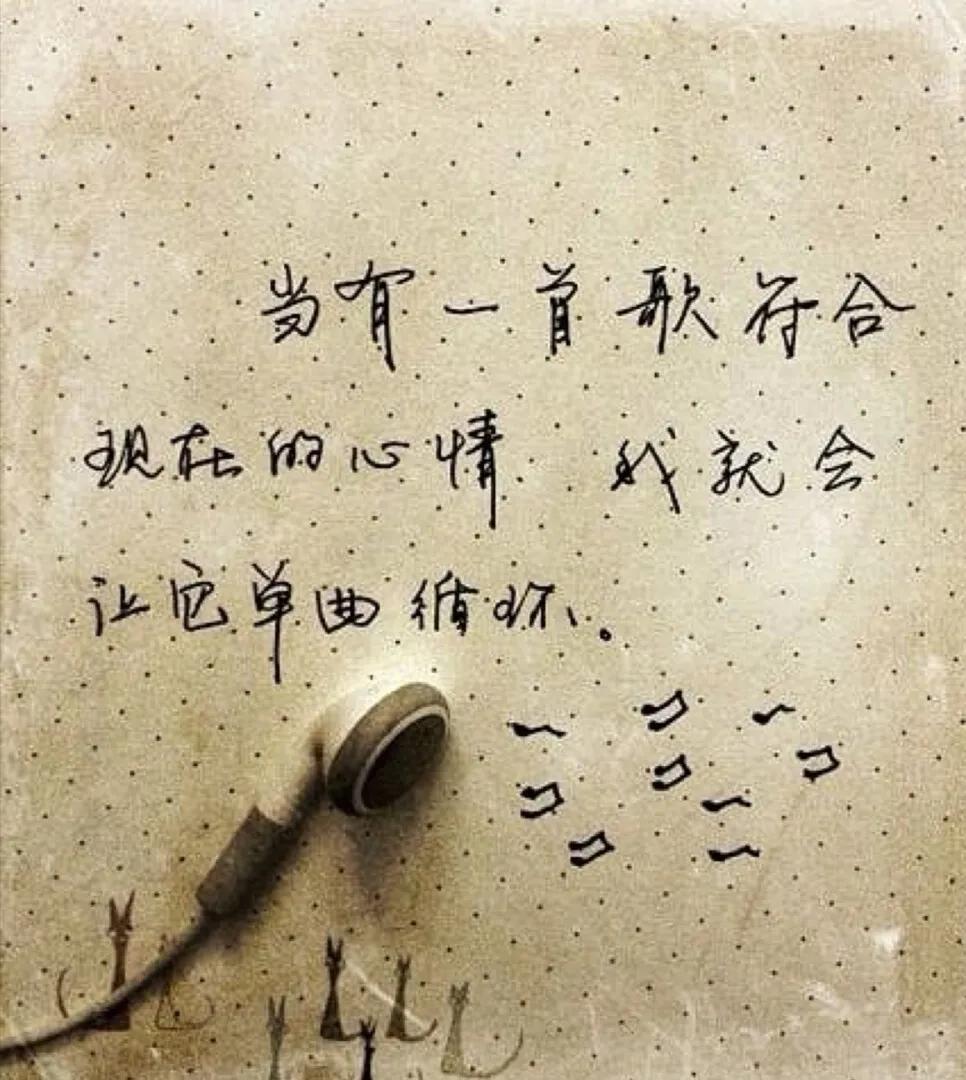 当有一首歌符合
现在的心情、我就会
让它单曲循环、。